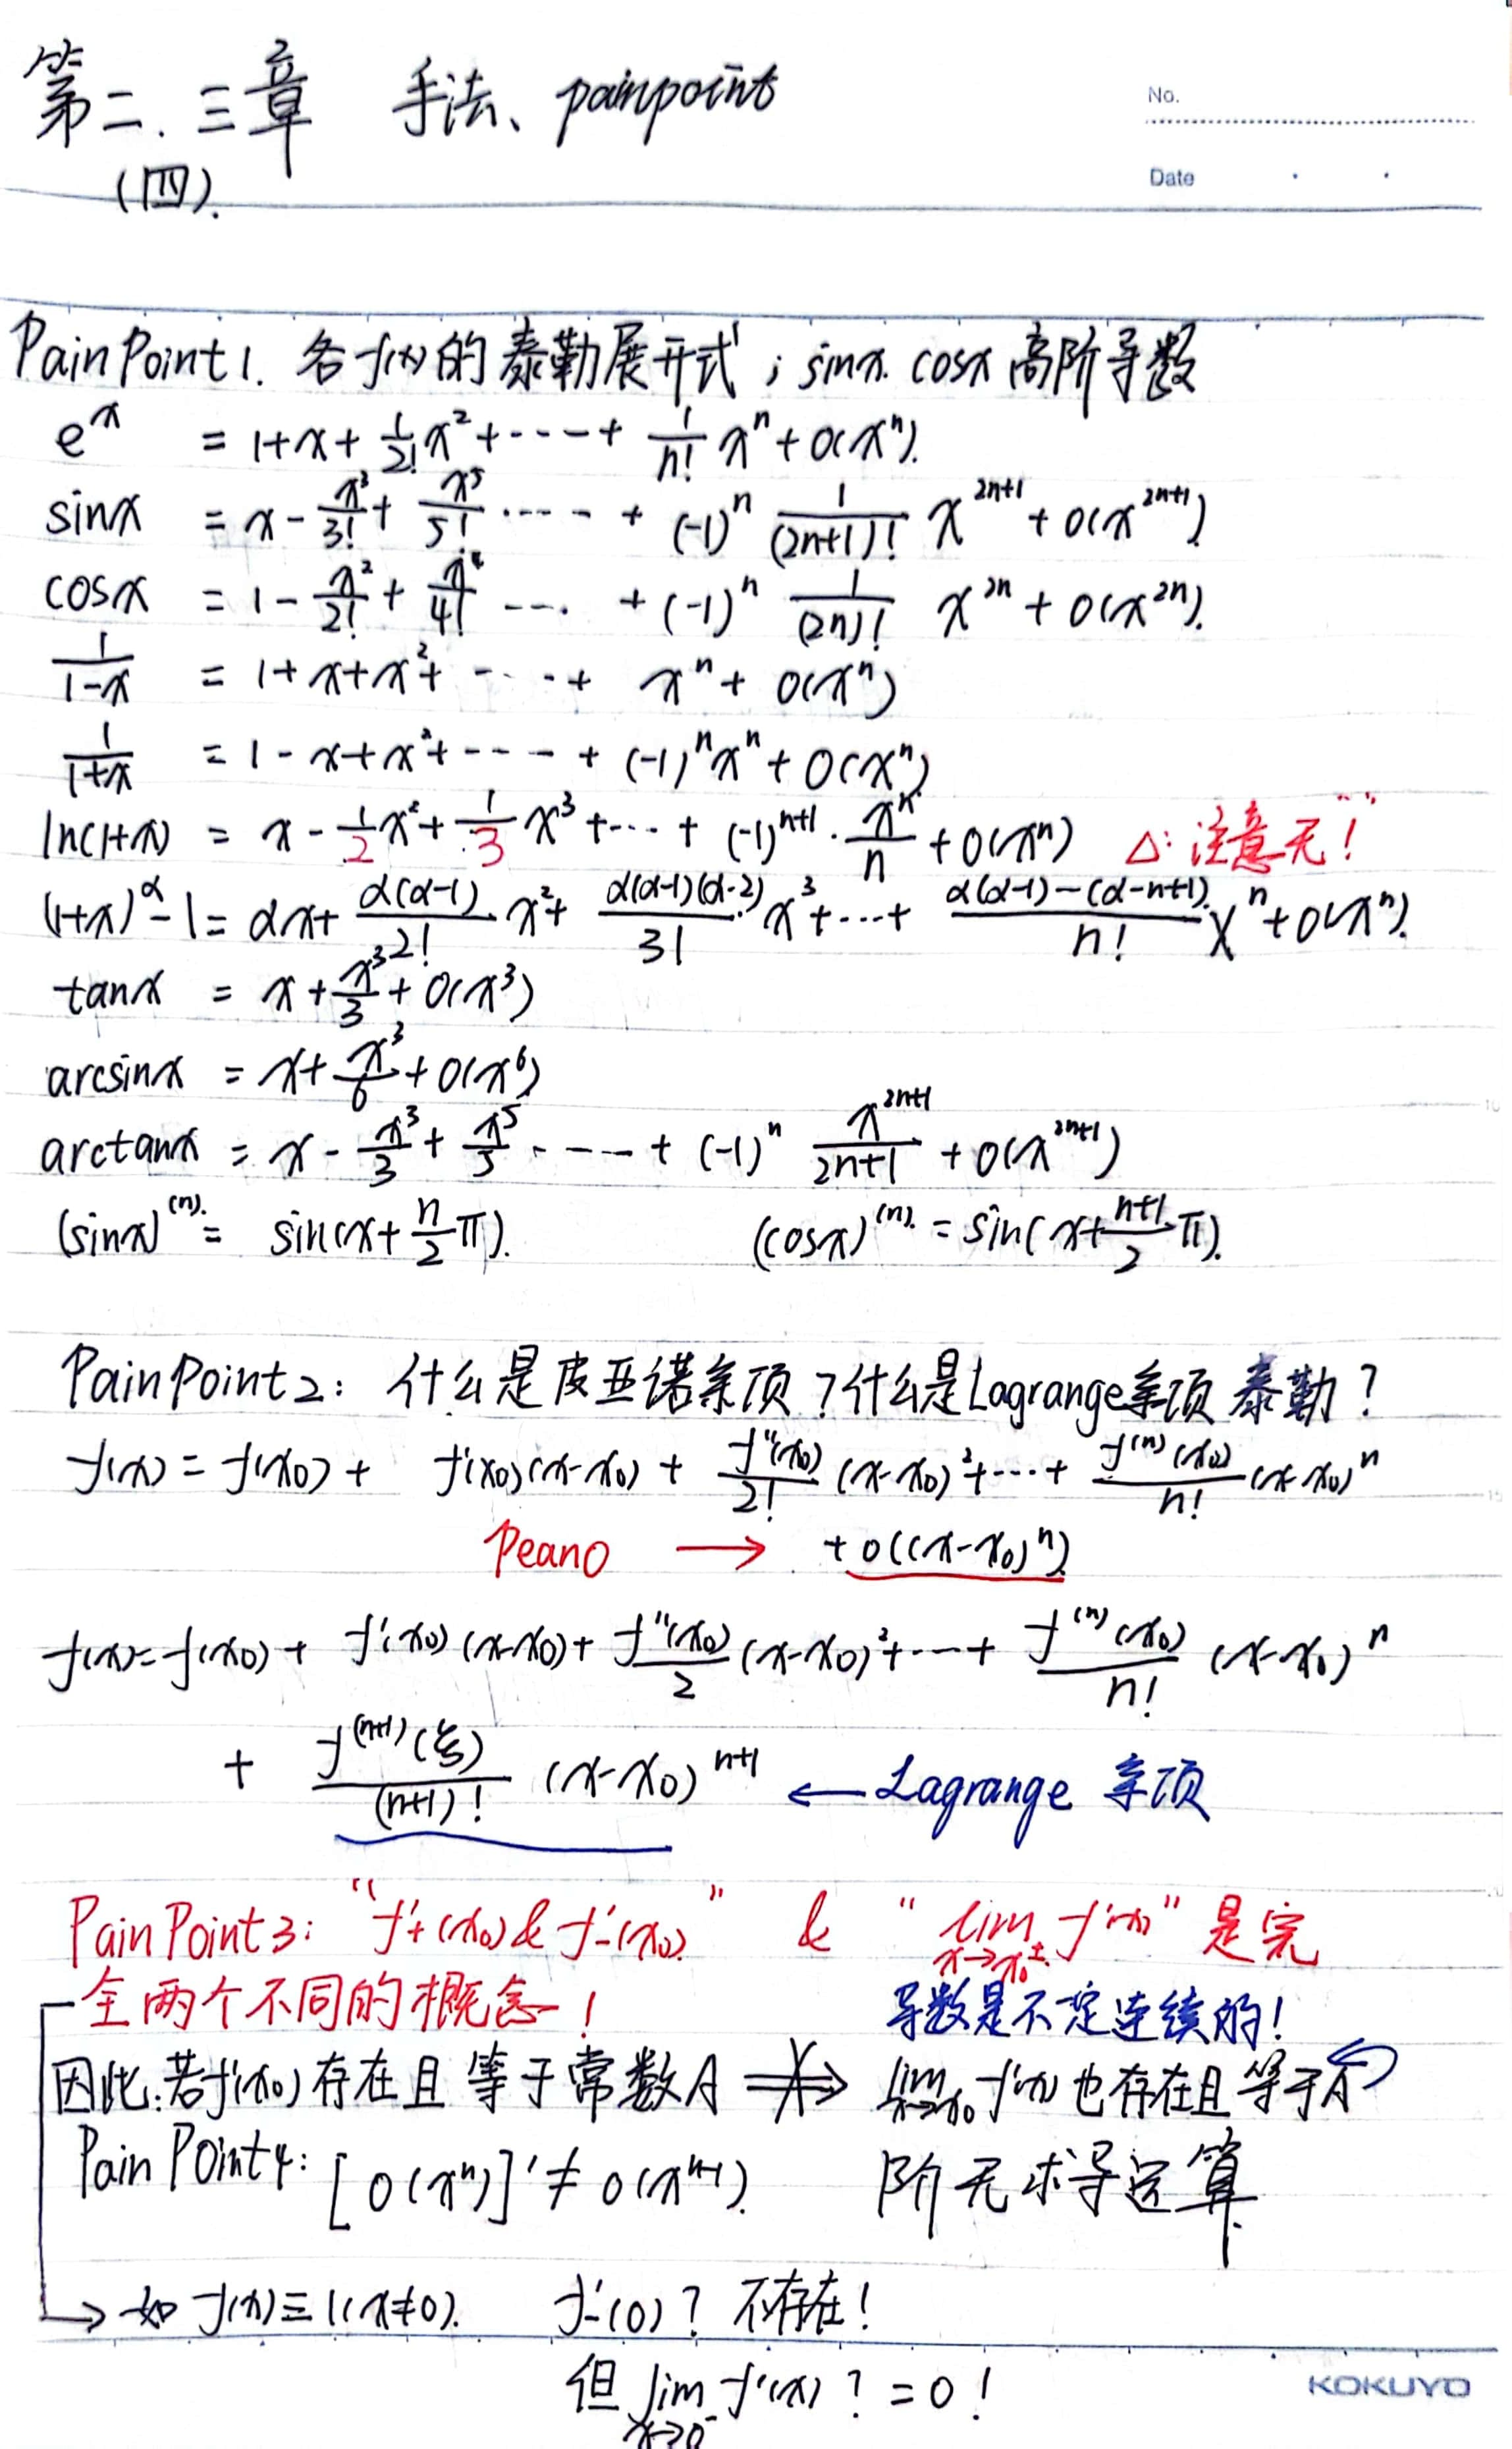 第二.三章 手法、painpoint
No.
(四).
Date
PainPoint1. 各f(x)的泰勒展开式;sinx. cosx高阶导数
e^x = 1+x+\frac{1}{2!}x^2+----+\frac{1}{n!}x^n+o(x^n).
sinx = x-\frac{x^3}{3!}+\frac{x^5}{5!}----+(-1)^n\frac{1}{(2n+1)!}x^{2n+1}+o(x^{2n+1})
cosx = 1-\frac{x^2}{2!}+\frac{x^4}{4!}---.+(-1)^n\frac{1}{(2n)!}x^{2n}+o(x^{2n}).
\frac{1}{1-x} = 1+x+x^2+----+x^n+o(x^n)
\frac{1}{1+x} = 1-x+x^2+----+(-1)^nx^n+o(x^n)
ln(1+x) = x-\frac{1}{2}x^2+\frac{1}{3}x^3+---+(-1)^{n+1}·\frac{x^n}{n}+o(x^n) Δ:注意无“!”
(1+x)^α-1=αx+\frac{α(α-1)}{2!}x^2+\frac{α(α-1)(α-2)}{3!}x^3+---+\frac{α(α-1)--(α-n+1)}{n!}x^n+o(x^n).
tanx = x+\frac{x^3}{3}+o(x^3)
arcsinx = x+\frac{x^3}{6}+o(x^6)
arctanx = x-\frac{x^3}{3}+\frac{x^5}{5}----+(-1)^n\frac{x^{2n+1}}{2n+1}+o(x^{2n+1})
(sinx)^{(n)}=sin(x+\frac{n}{2}π). (cosx)^{(n)}=sin(x+\frac{n+1}{2}π).
PainPoint2: 什么是皮亚诺余项?什么是Lagrange余项泰勒?
f(x)=f(x_0)+f'(x_0)(x-x_0)+\frac{f''(x_0)}{2!}(x-x_0)^2+---+\frac{f^{(n)}(x_0)}{n!}(x-x_0)^n
Peano → +o((x-x_0)^n)
f(x)=f(x_0)+f'(x_0)(x-x_0)+\frac{f''(x_0)}{2}(x-x_0)^2+---+\frac{f^{(n)}(x_0)}{n!}(x-x_0)^n
+\frac{f^{(n+1)}(ξ)}{(n+1)!}(x-x_0)^{n+1} ← Lagrange 余项
PainPoint3: “f'_+(x_0)&f'_-(x_0)” & “\lim_{x→x_0^±}f'(x)”是完
全两个不同的概念! 导数是不一定连续的!
因此:若f'(x_0)存在且等于常数A ⇏ \lim_{x→x_0}f'(x)也存在且等于A
PainPoint4: [o(x^n)]'≠o(x^{n-1}). 阶无求导运算.
→ 如f(x)≡1(x≠0). f'_-(0)? 不存在!
但\lim_{x→0^-}f'(x)?=0!
KOKUYO